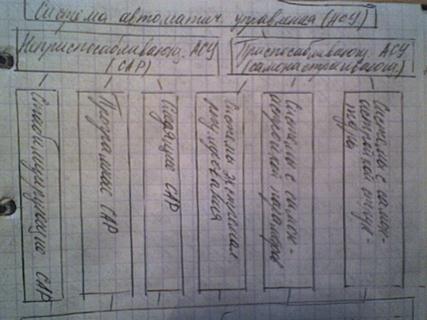 Система автоматич. управления (АСУ)
Неприспосабливающ. АСУ
(САР)
Приспосабливающ. АСУ
(самонастраивающ.)
Стабилизирующие САР
Программн САР
Следящие САР
Системы экстремал
регулирования
Системы с самон-
астройкой параметров
Системы с самон-
астройкой структ-
туры